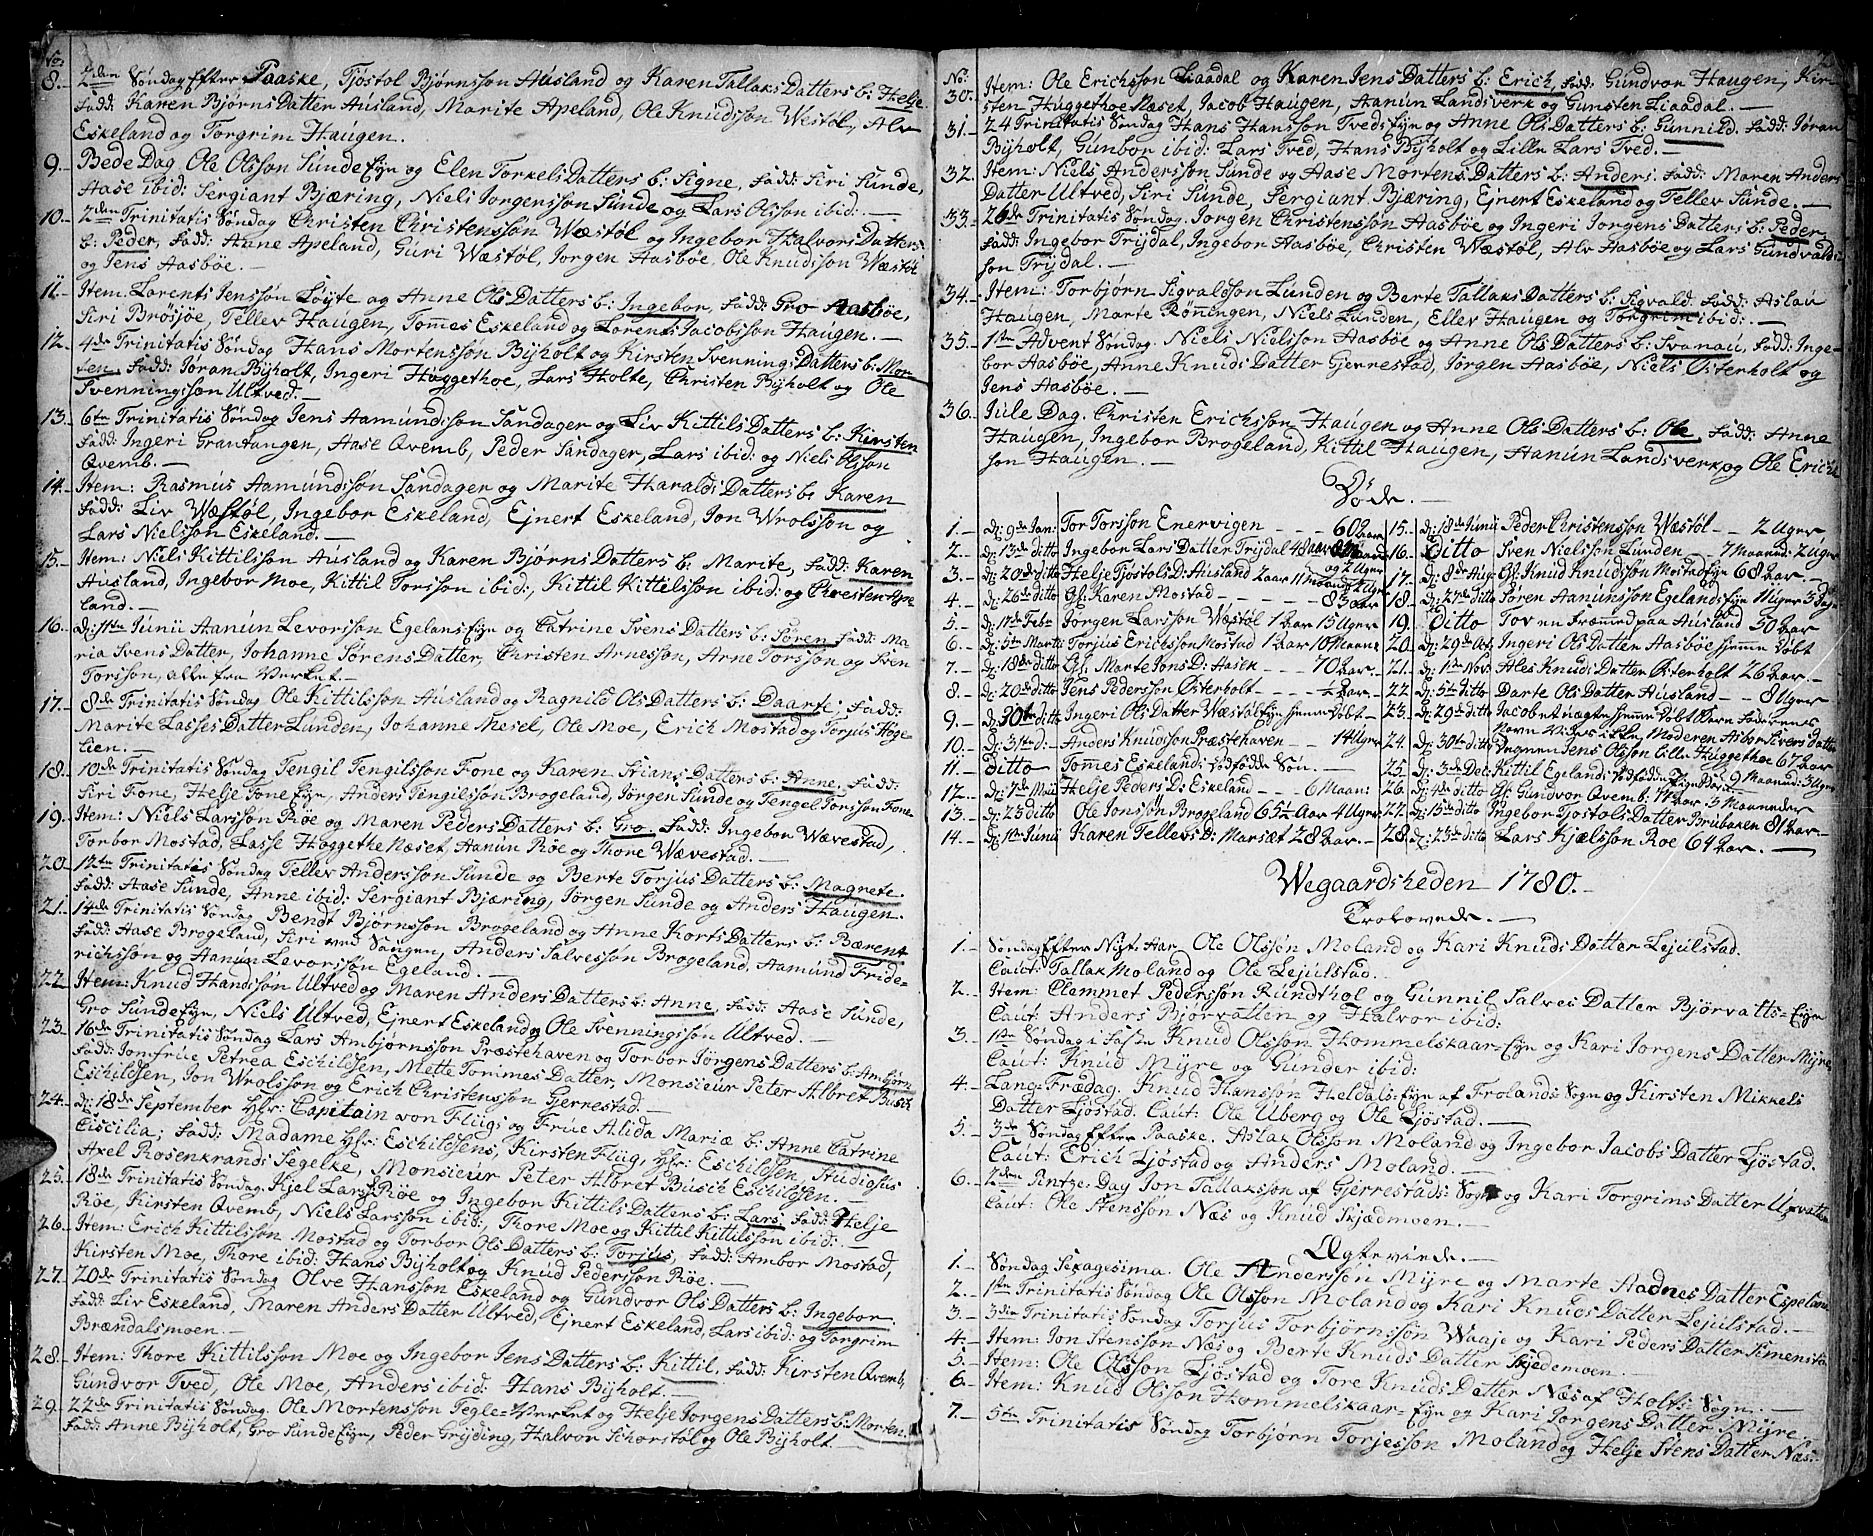 No:
8. 2den Søndag Efter Paaske, Tjøstol Bjørnssøn Ausland og Karen Tallaks Datters b: Helje.
fadd: Karen Bjørns Datter Ausland, Marite Apeland, Ole Knudssøn Westøl, Alv
Eskeland og Torgrim Haugen.
9. Bede Dag Ole Olssøn Sunde Eyn og Elen Torkels Datters b: Signe, fadd: Siri Sunde,
Aase ibid: Sergiant Bjæring, Niels Jorgenssøn Sunde og Lars Olsson ibid: —
10. 2den Trinitatis Søndag Christen Christenssøn Wæstøl og Ingebor Halvors Datters
b: Peder, fadd: Anne Apeland, Guri Wæstøl, Jorgen Aasbøe, Ole Knudssøn Wæstøl
og Jens Aasbøe. —
11. Item: Larents Jenssøn Løyte og Anne Ols Datters b: Ingebor, fadd: Gro Aasbøe,
Siri Brøsjøe, Tellev Haugen, Tommes Eskeland og Lorents Jacobsson Haugen. —
12. 4de Trinitatis Søndag Hans Mortenssøn Bijholt og Kirsten Svennings Datters b: Mor-
ten, fadd: Joran Bijholt, Ingeri Høggethoe, Lars Holte, Christen Bijholt og Ole
Svenningssøn Ultved. —
13. 6te Trinitatis Søndag Jens Aamundssøn Sandager og Liv Kittils Datters b: Kirsten
fadd: Ingeri Grantangen, Aase Qvemb, Peder Sandager, Lars ibid: og Niels Olsson
Qvemb. —
14. Item: Rasmus Aamundssøn Sandager og Marite Haralds Datters b: Karen
fadd: Liv Wæstøl, Ingebor Eskeland, Ejnert Eskeland, Jon Wrolsson og
Lars Nielsson Eskeland. —
15. Item: Niels Kittilssøn Ausland og Karen Bjørns Datters b: Marite, fadd: Karen
Ausland, Ingebor Moe, Kittil Torsson ibid: Kittil Kittilsson ibid: og Christen Ape
land. —
16. d: 11te Junii Aanun Levorsson Egelands Eyn og Catrine Svens Datters b: Søren fadd: Ma
ria Svens Datter, Johanne Sørens Datter, Christen Arnesson, Arne Torsson og Sven
Torsson, alle fra Verket. —
17. 8de Trinitatis Søndag Ole Kittilssøn Ausland og Ragnild Ols Datters b: Daarte, fadd:
Marite Lasses Datter Lunden, Johanne Mesel, Ole Moe, Erich Mostad og Torjus Høge
lien. —
18. 10de Trinitatis Søndag Tengil Tengilssøn Fone og Karen Stians Datters b: Anne, fadd:
Siri Fone, Helje Fone Eyn, Anders Tengilssøn Brogeland, Jørgen Sunde og Tengel Torsson Fone
19. Item: Niels Larsson Røe og Maren Peders Datters b: Gro, fadd: Ingebor Wævestad,
Torbor Mostad, Lasse Høggethe Neset, Aanun Røe og Thore Wævestad. —
20. 12te Trinitatis Søndag Tellev Anderssøn Sunde og Berte Torjus Datters b: Magnete.
fadd: Aase Sunde, Anne ibid: Sergiant Bjæring, Jørgen Sunde og Anders Haugen.
21. 14de Trinitatis Søndag Bendt Bjørnsson Brogeland og Anne Korts Datters b: Bærent
fadd: Aase Brogeland, Siri ved Saugen, Anders Salvesson Brogeland, Aamund Fride-
richssøn og Aanun Levorsson Egeland. —
22. Item: Knud Hanssøn Ultved og Maren Anders Datters b: Anne, fadd: Aase Sunde,
Gro Sunde Eyn, Niels Ultved, Ejnert Eskeland og Ole Svenningssøn Ultved. —
23. 16de Trinitatis Søndag Lars Ambjørnssøn Præstehaven og Torbor Jørgens Datters b: Ambjørn
fadd: Jomfrue Petrea Eschildsen, Mette Tommes Datter, Monsieur Peter Albret Busch
Eschildsen, Jon Wrolsson og Erich Christenssøn Gerrestad. —
24. d: 18de September Hr: Capitain von Flug; og Frue Alida Mariæ b: Anne Catrine
Ciscilia; fadd: Madame Hr: Eschildsens, Kirsten Flug, Hr: Eschildsen, Studiosus
Axel Rosenkrands Segelke, Monsieur Peter Albret Busch Eschildsen.
25. 18de Trinitatis Søndag. Kjel Larsøn Røe og Ingebor Kittils Datters b: Lars, fadd: Helje
Røe, Kirsten Qvemb, Niels Larsson ibid:, Thore Moe og Kittil Kittilsson ibid: —
26. Item: Erich Kittilssøn Mostad og Torbor Ols Datters b: Torjus, fadd: Ambor Mostad,
Kirsten Moe, Thore ibid: Hans Bijholt og Knud Pederssøn Røe. —
27. 20de Trinitatis Søndag Olve Hanssøn Eskeland og Gundvor Ols Datters b: Ingebor
fadd: Liv Eskeland, Maren Anders Datter Ultved, Ejnert Eskeland, Lars ibid: og Torgrim
Brændalsmoen. —
28. Item: Thore Kittilssøn Moe og Ingebor Jens Datters b: Kittil, fadd: Kirsten Qvemb,
Gundvor Tved, Ole Moe, Anders ibid: Hans Bijholt. —
29. 22de Trinitatis Søndag. Ole Mortenssøn Tegle-Verket og Helje Jorgens Datters b: Morten.
fadd: Anne Bijholt, Gro Sunde Eyn, Peder Grijding, Halvor Schorstøl og Ole Bijholt. —
No:
30. Item: Ole Erichsson Liaadal og Karen Jens Datters b: Erich, fadd: Gundvor Haugen, Kir
sten Huggethoe Næset, Jacob Haugen, Aanun Landsverk og Gunsten Liaadal. —
31. 24 Trinitatis Søndag Hans Hanssøn Tveds Eyn og Anne Ols Datters b: Gunnild. fadd: Joran
Bijholt, Gunbor ibid: Lars Tved, Hans Bijholt og Lille Lars Tved. —
32. Item: Niels Anderssøn Sunde og Aase Mortens Datters b: Anders, fadd: Maren Anders
Datter Ultved, Siri Sunde, Sergiant Bjæring, Ejnert Eskeland og Tellev Sunde. —
33. 26de Trinitatis Søndag. Jorgen Christenssøn Aasbøe og Ingeri Jorgens Datters b: Peder
fadd: Ingebor Trijdal, Ingebor Aasbøe, Christen Wæstøl, Alv Aasbøe og Lars Gundvalds
søn Trijdal. —
34. Item: Torbjørn Sigvaldsøn Lunden og Berte Tallaks Datters b: Sigvald. fadd: Aslau
Haugen, Marte Rønningen, Niels Lunden, Ellev Haugen og Torgrim ibid: —
35. 1ste Advent Søndag. Niels Nielsson Aasbøe og Anne Ols Datters b: Svanau, fadd: Inge-
bor Aasbøe, Anne Knuds Datter Gjerrestad, Jørgen Aasbøe, Niels Østerholt og
Jens Aasbøe. —
36. Jule Dag. Christen Erichsson Haugen og Anne Ols Datters b: Ole, fadd: Anne
Haugen, Ingebor Brogeland, Kittil Haugen, Aanun Landsverk og Ole Erichs
søn Haugen. —
Døde. —
1. — d: 9de Jan: Tor Torsson Enervigen — — 60 Aar
2. — d: 13de ditto Ingebor Lars Datter Trijdal 48 Aar
og 2 Uger
3. — d: 20de ditto Helje Tjøstols D: Ausland 2 Aar 11 Maan: 2 Uger
4. — d: 26de ditto Gl: Karen Mostad — — — 83 Aar
5. — d: 17de Febr Jorgen Larsson Wæstøl 1 Aar 15 Uger
6. — d: 5te Marti Torjus Ericksson Mostad 1 Aar 10 Maane
7. — d: 18de ditto Gl: Marte Jons D: Aasen — 70 Aar. —
8. — d: 20de ditto Jens Pedersson Østerholt — — — ½ Aar. —
9. — d: 30te ditto Ingeri Ols Datter Wæstøl Eyn hjemme Døbt —
10. — d: 31te d: — Anders Knudsson Præstehaven — — 14 Uger
11. — ditto Tommes Eskelands dødfødde Søn. —
12. — d: 7de Maii Helje Peders D: Eskeland — — 6 Maan:
13. — d: 23 ditto Ole Jonssøn Brogeland 65½ Aar 4 Uger
14. — d: 1ste Junii Karen Tellevs D: Marsæt 28 Aar. —
15. — d: 18de Junii Peder Christenssøn Wæstøl — 2 Uger
16. — ditto Sven Nielsson Lunden — 7 Maaned: 2 Uger
17. — d: 8de Aug Gl: Knud Knudssøn Mostad Eyn 68 Aar —
18. — d: 27de ditto Søren Aanunsøn Egelands Eyn 11 Uger 3 Dage
19. ditto Tov en Fræmmed paa Ausland 50 Aar
20. d: 29de Oct Ingeri Ols Datter Aasbøe hjemme Døbt
21. — d: 1ste Nov Ales Knuds Datter Østerholt 26 Aar —
22. d: 5te ditto Darte Ols Datter Ausland — 8 Uger
23. — d: 29de ditto Jacob et uægte hjemme Døbt Barn Faderens
Navn vides ikke, Moderen Aibor Sivers Datter
24. — d: 30te ditto Jens Olsson Lille Huggethoe 67 Aar
25. d: 3de Dec: Kittil Egelands dødfødde
26. d: 4de ditto Gl: Gundvor Qvemb: 77 Aar 3 Maaneder
27. d: 15de ditto Ingebor Tjostols Datter Brubaken 81 Aar. —
28. d: 23de ditto Lars Kjælssøn Roe 64 Aar. —
Wegaardsheden 1780. —
Trolovede. —
1. — Søndag Efter Nyt Aar — Ole Olssøn Moland og Kari Knuds Datter Lejulstad.
Caut: Tallak Moland og Ole Lejulstad. —
2. — Item: Clemmet Pederssøn Rundthol og Gunnil Salves Datter Bjørvatts-Eyn
Caut: Anders Bjorvatten og Halvor ibid:
3. — 1ste Søndag i Faste Knud Olssøn Hommelskaar-Eyn og Kari Jorgens Datter Mijre,
Caut: Knud Mijre og Gunder ibid:
4. — Lang-Fredag. Knud Hanssøn Heldals-Eyn af Frolands Sogn og Kirsten Mikkels
Datter Ljøstad. Caut: Ole Uberg og Ole Ljøstad. —
5. — 3de Søndag Efter Paaske. Aslak Olssøn Moland og Ingebor Jacobs Datter Ljøstad.
Caut: Erich Ljøstad og Anders Moland. —
6. — 2den Pintze-Dag Jon Tallakssøn af Gjerrestads Sogn og Kari Torgrims Datter Upvatten
Caut: Ole Stenssøn Næs og Knud Skjædmoen. —
Ægteviede. —
1. — Søndag Sexagesima. Ole Anderssøn Mijre og Marte Aadnes Datter Espeland
2. — 1ste Trinitatis Søndag Ole Olssøn Moland og Kari Knuds Datter Lejulstad. —
3. — 3die Trinitatis Søndag Torjus Torbjørnssøn Waaje og Kari Peders Datter Simenstad
4. — Item: Jon Stenssøn Næs og Berte Knuds Datter Skjedemoen. —
5. — Item: Ole Olssøn Ljøstad og Tore Knuds Datter Næs af Holts: Sogn. —
6. — Item: Knud Olssøn Hommelskaar-Eyn og Kari Jorgens Datter Mijre. —
7. — 5te Trinitatis Søndag Torbjørn Torjessøn Moland og Helje Stens Datter Næs: —